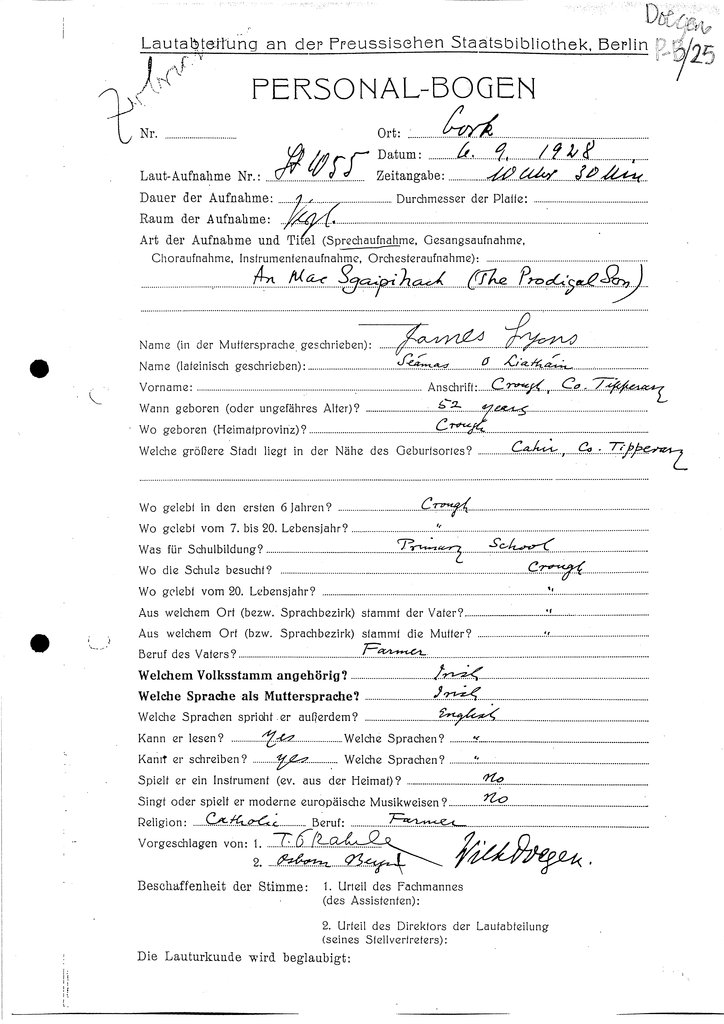 Doegen
Lautabteilung an der Preussischen Staatsbibliothek, Berlin
/25
PERSONAL-BOGEN
Nr.
Ort: Cork
Datum: 6. 9. 1928
Laut-Aufnahme Nr.: 1055
Zeitangabe: 10 Uhr 30 Min
Dauer der Aufnahme:
Durchmesser der Platte:
Raum der Aufnahme:
Art der Aufnahme und Titel (Sprechaufnahme, Gesangsaufnahme,
Choraufnahme, Instrumentenaufnahme, Orchesteraufnahme):
An Mac Sgaipiheach (The Prodigal Son)
Name (in der Muttersprache geschrieben): James Lyons
Name (lateinisch geschrieben): Séamas O Liatháin
Vorname:
Anschrift: Crough, Co. Tipperary
Wann geboren (oder ungefähres Alter)? 52 years
Wo geboren (Heimatprovinz)? Crough
Welche größere Stadt liegt in der Nähe des Geburtsortes? Cahir, Co. Tipperary
Wo gelebt in den ersten 6 Jahren? Crough
Wo gelebt vom 7. bis 20. Lebensjahr? "
Was für Schulbildung? Primary School
Wo die Schule besucht? Crough
Wo gelebt vom 20. Lebensjahr? "
Aus welchem Ort (bezw. Sprachbezirk) stammt der Vater? "
Aus welchem Ort (bzw. Sprachbezirk) stammt die Mutter? "
Beruf des Vaters? Farmer
Welchem Volksstamm angehörig? Irish
Welche Sprache als Muttersprache? Irish
Welche Sprachen spricht er außerdem? English
Kann er lesen? yes Welche Sprachen? "
Kann er schreiben? yes Welche Sprachen? "
Spielt er ein Instrument (ev. aus der Heimat)? No
Singt oder spielt er moderne europäische Musikweisen? No
Religion: Catholic Beruf: Farmer
Vorgeschlagen von: 1. T. Ó Rahille
2. Osborn Bergin
Wilh Doegen.
Beschaffenheit der Stimme: 1. Urteil des Fachmannes
(des Assistenten):
2. Urteil des Direktors der Lautabteilung
(seines Stellvertreters):
Die Lauturkunde wird beglaubigt: